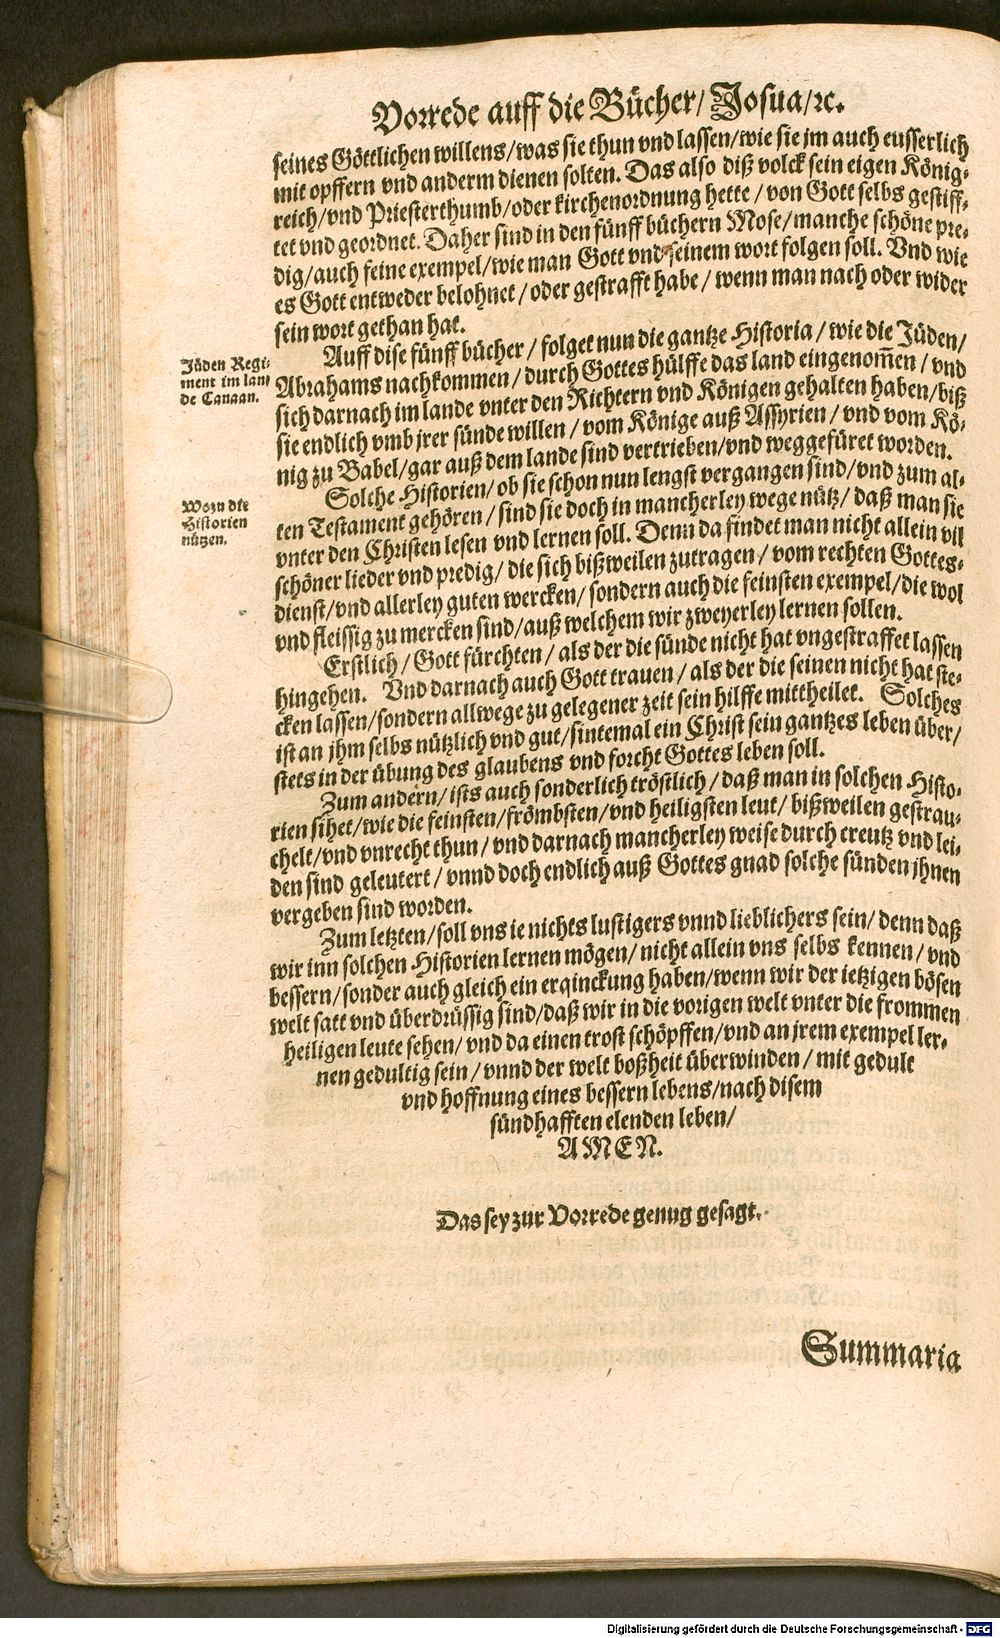 Vorrede auff die Bücher/ Josua/ꝛc.
seines Göttlichen willens/was sie thun vnd lassen/wie sie jm auch eusserlich
mit opffern vnd anderm dienen solten. Das also diß volck sein eigen König-
reich/vnd Priesterthumb/oder kirchenordnung hette/ von Gott selbs gestiff-
tet vnd geordnet. Daher sind in den fünff büchern Mose/manche schöne pre-
dig/auch feine exempel/wie man Gott vnd seinem wort folgen soll. Vnd wie
es Gott entweder belohnet/oder gestrafft habe/ wenn man nach oder wider
sein wort gethan hat.
Jüden Regi-
ment im lan
de Canaan.
Auff dise fünff bücher/ folget nun die gantze Historia/ wie die Jüden/
Abrahams nachkommen/durch Gottes hülffe das land eingenom̅en/ vnd
sich darnach im lande vnter den Richtern vnd Königen gehalten haben/biß
sie endlich vmb jrer sünde willen/ vom Könige auß Assyrien/ vnd vom Kö-
nig zu Babel/gar auß dem lande sind vertrieben/vnd weggefüret worden.
Wozu die
Historien
nützen.
Solche Historien/ ob sie schon nun lengst vergangen sind/vnd zum al-
ten Testament gehören/ sind sie doch in mancherley wege nütz/ daß man sie
vnter den Christen lesen vnd lernen soll. Denn da findet man nicht allein vil
schöner lieder vnd predig/ die sich bißweilen zutragen/ vom rechten Gottes-
dienst/vnd allerley guten wercken/ sondern auch die feinsten exempel/die wol
vnd fleissig zu mercken sind/auß welchem wir zweyerley lernen sollen.
Erstlich/ Gott fürchten/ als der die sünde nicht hat vngestraffet lassen
hingehen. Vnd darnach auch Gott trauen/ als der die seinen nicht hat ste-
cken lassen/sondern allwege zu gelegener zeit sein hilffe mittheilet. Solches
ist an jhm selbs nützlich vnd gut/sintemal ein Christ sein gantzes leben über/
stets in der übung des glaubens vnd forcht Gottes leben soll.
Zum andern/ ists auch sonderlich tröstlich/ daß man in solchen Histo-
rien sihet/wie die feinsten/frömbsten/vnd heiligsten leut/ bißweilen gestrau-
chelt/vnd vnrecht thun/ vnd darnach mancherley weise durch creutz vnd lei-
den sind geleutert/ vnnd doch endlich auß Gottes gnad solche sünden jhnen
vergeben sind worden.
Zum letzten/soll vns ie nichts lustigers vnnd lieblichers sein/ denn daß
wir inn solchen Historien lernen mögen/ nicht allein vns selbs kennen/ vnd
bessern/sonder auch gleich ein erqinckung haben/wenn wir der ietzigen bösen
welt satt vnd überdrüssig sind/daß wir in die vorigen welt vnter die frommen
heiligen leute sehen/ vnd da einen trost schöpffen/vnd an jrem exempel ler-
nen gedultig sein/ vnnd der welt boßheit überwinden/ mit gedult
vnd hoffnung eines bessern lebens/nach disem
sündhafften elenden leben/
AMEN.
Das sey zur Vorrede genug gesagt.
Summaria
Digitalisierung gefördert durch die Deutsche Forschungsgemeinschaft - DFG